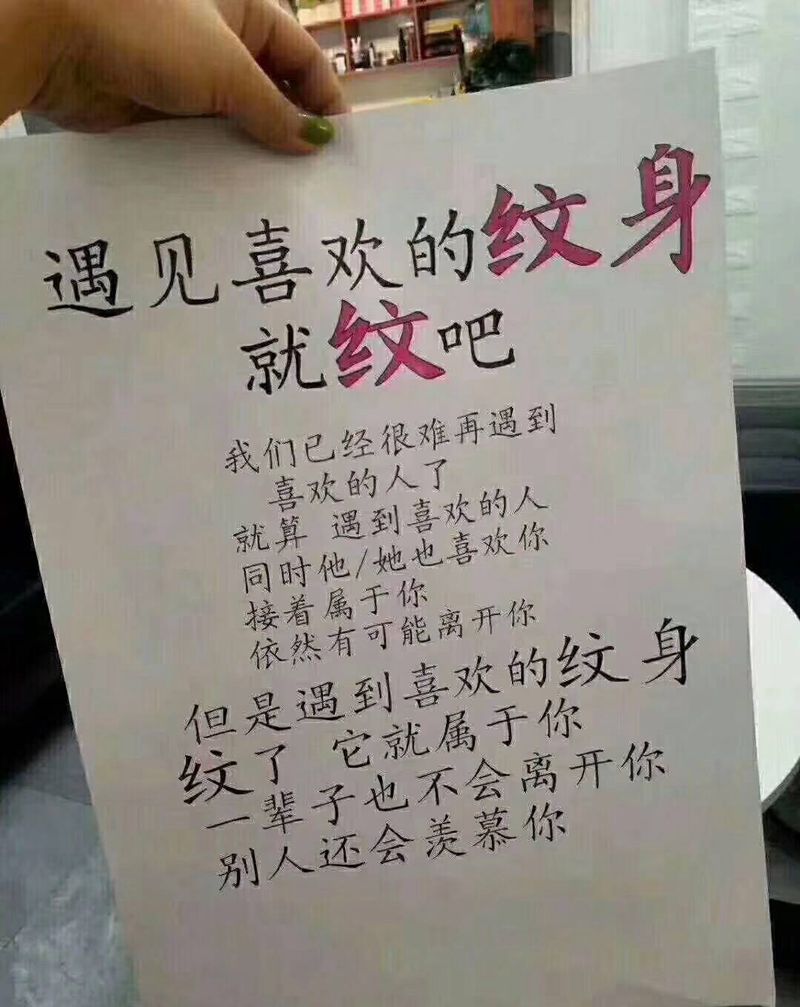 遇见喜欢的纹身
就纹吧
我们已经很难再遇到
喜欢的人了
就算 遇到喜欢的人
同时他/她也喜欢你
接着属于你
依然有可能离开你
但是遇到喜欢的纹身
纹了 它就属于你
一辈子也不会离开你
别人还会羡慕你